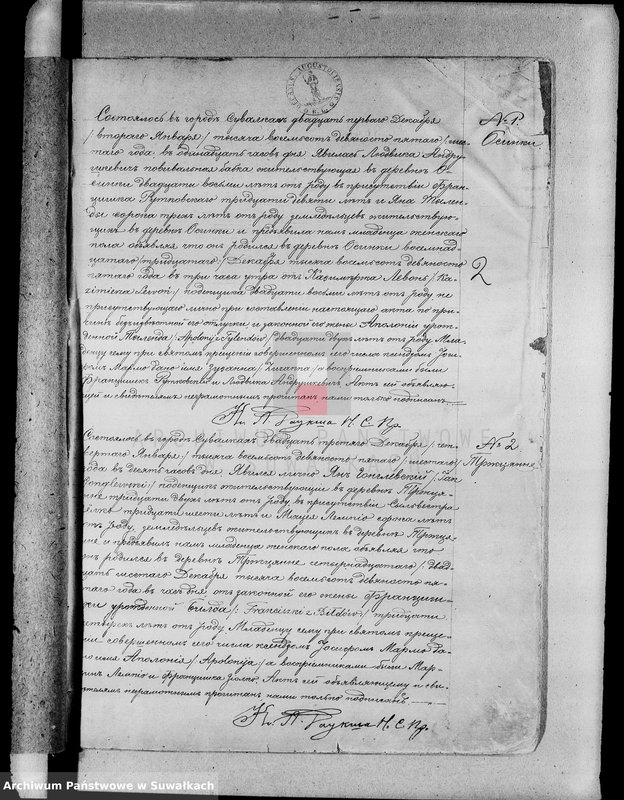 № 1.
Осинки
Состоялось въ городѣ Сувалкахъ двадцать перваго Декабря
/втораго Января/ тысяча восемьсотъ девяносто пятаго /шес-
таго года въ одинадцать часовъ дня. Явилась Людвика Андру-
шкевичъ повивальная бабка жительствующая въ деревнѣ О-
синки двадцати восьми лѣтъ отъ роду въ присутствіи Фран-
цишка Рутковскаго тридцати девяти лѣтъ и Яна Тылен-
ды сорока трехъ лѣтъ отъ роду земледѣльцевъ жительствую-
щихъ въ деревнѣ Осинки и предъявила намъ младенца женскаго
пола объявляя что онъ родился въ деревнѣ Осинки восемнад-
цатаго /тридцатаго/ Декабря тысяча восемьсотъ девяносто
пятаго года въ три часа утра отъ Казимѣрża Левонь /Ka-
zimierza Lewoń/ поденщика двадцати восьми лѣтъ отъ роду не
присутствующаго лично при составленіи настоящаго акта по при-
чинѣ безъизвѣстной его отлучки и законной его жены Аполоніи урож-
денной Тыленда /Apolonji z Tylendów/ двадцати двухъ лѣтъ отъ роду. Мла-
денцу сему при святомъ крещеніи совершенномъ его числа ксендзомъ Іос-
ифомъ Мармо дано имя Зузанна /Zuzanna/ а воспріемниками были
Францишекъ Рутковскій и Людвика Андрушкевичъ. Актъ сей объявляю-
щей и свидѣтелямъ неграмотнымъ прочитанъ нами только подписанъ.
Кс. П. Раукша Н. С. Пр.
2
№ 2.
Тржцянне
Состоялось въ городѣ Сувалкахъ двадцать третяго Декабря /чет-
вертаго Января/ тысяча восемьсотъ девяносто пятаго /шестаго
года въ десять часовъ дня. Явился лично Янъ
поденщикъ жительствующій въ деревнѣ Тржця-
нне тридцати двухъ лѣтъ отъ роду въ присутствіи Сильвестра
тридцати шести лѣтъ и Мацея Леппіо сорока лѣтъ
отъ роду, земледѣльцевъ жительствующихъ въ деревнѣ Тржця-
нне и предъявилъ намъ младенца женскаго пола объявляя что
онъ родился въ деревнѣ Тржцянне четырнадцатаго /двад-
цать шестаго Декабря тысяча восемьсотъ девяносто пя-
таго года въ часъ дня отъ законной его жены Францишки
урожденной Билда /Franciszki z Bildów/ тридцати
четырехъ лѣтъ отъ роду. Младенцу сему при святомъ креще-
ніи совершенномъ его числа ксендзомъ Іосифомъ Мармо да-
но имя Аполонія /Apolonija/ а воспріемниками были Мар-
цинъ Леппіо и Францишка. Актъ сей объявляющему и сви-
дѣтелямъ неграмотнымъ прочитанъ нами только подписанъ.
Кс. П. Раукша Н. С. Пр.
Archiwum Państwowe w Suwałkach